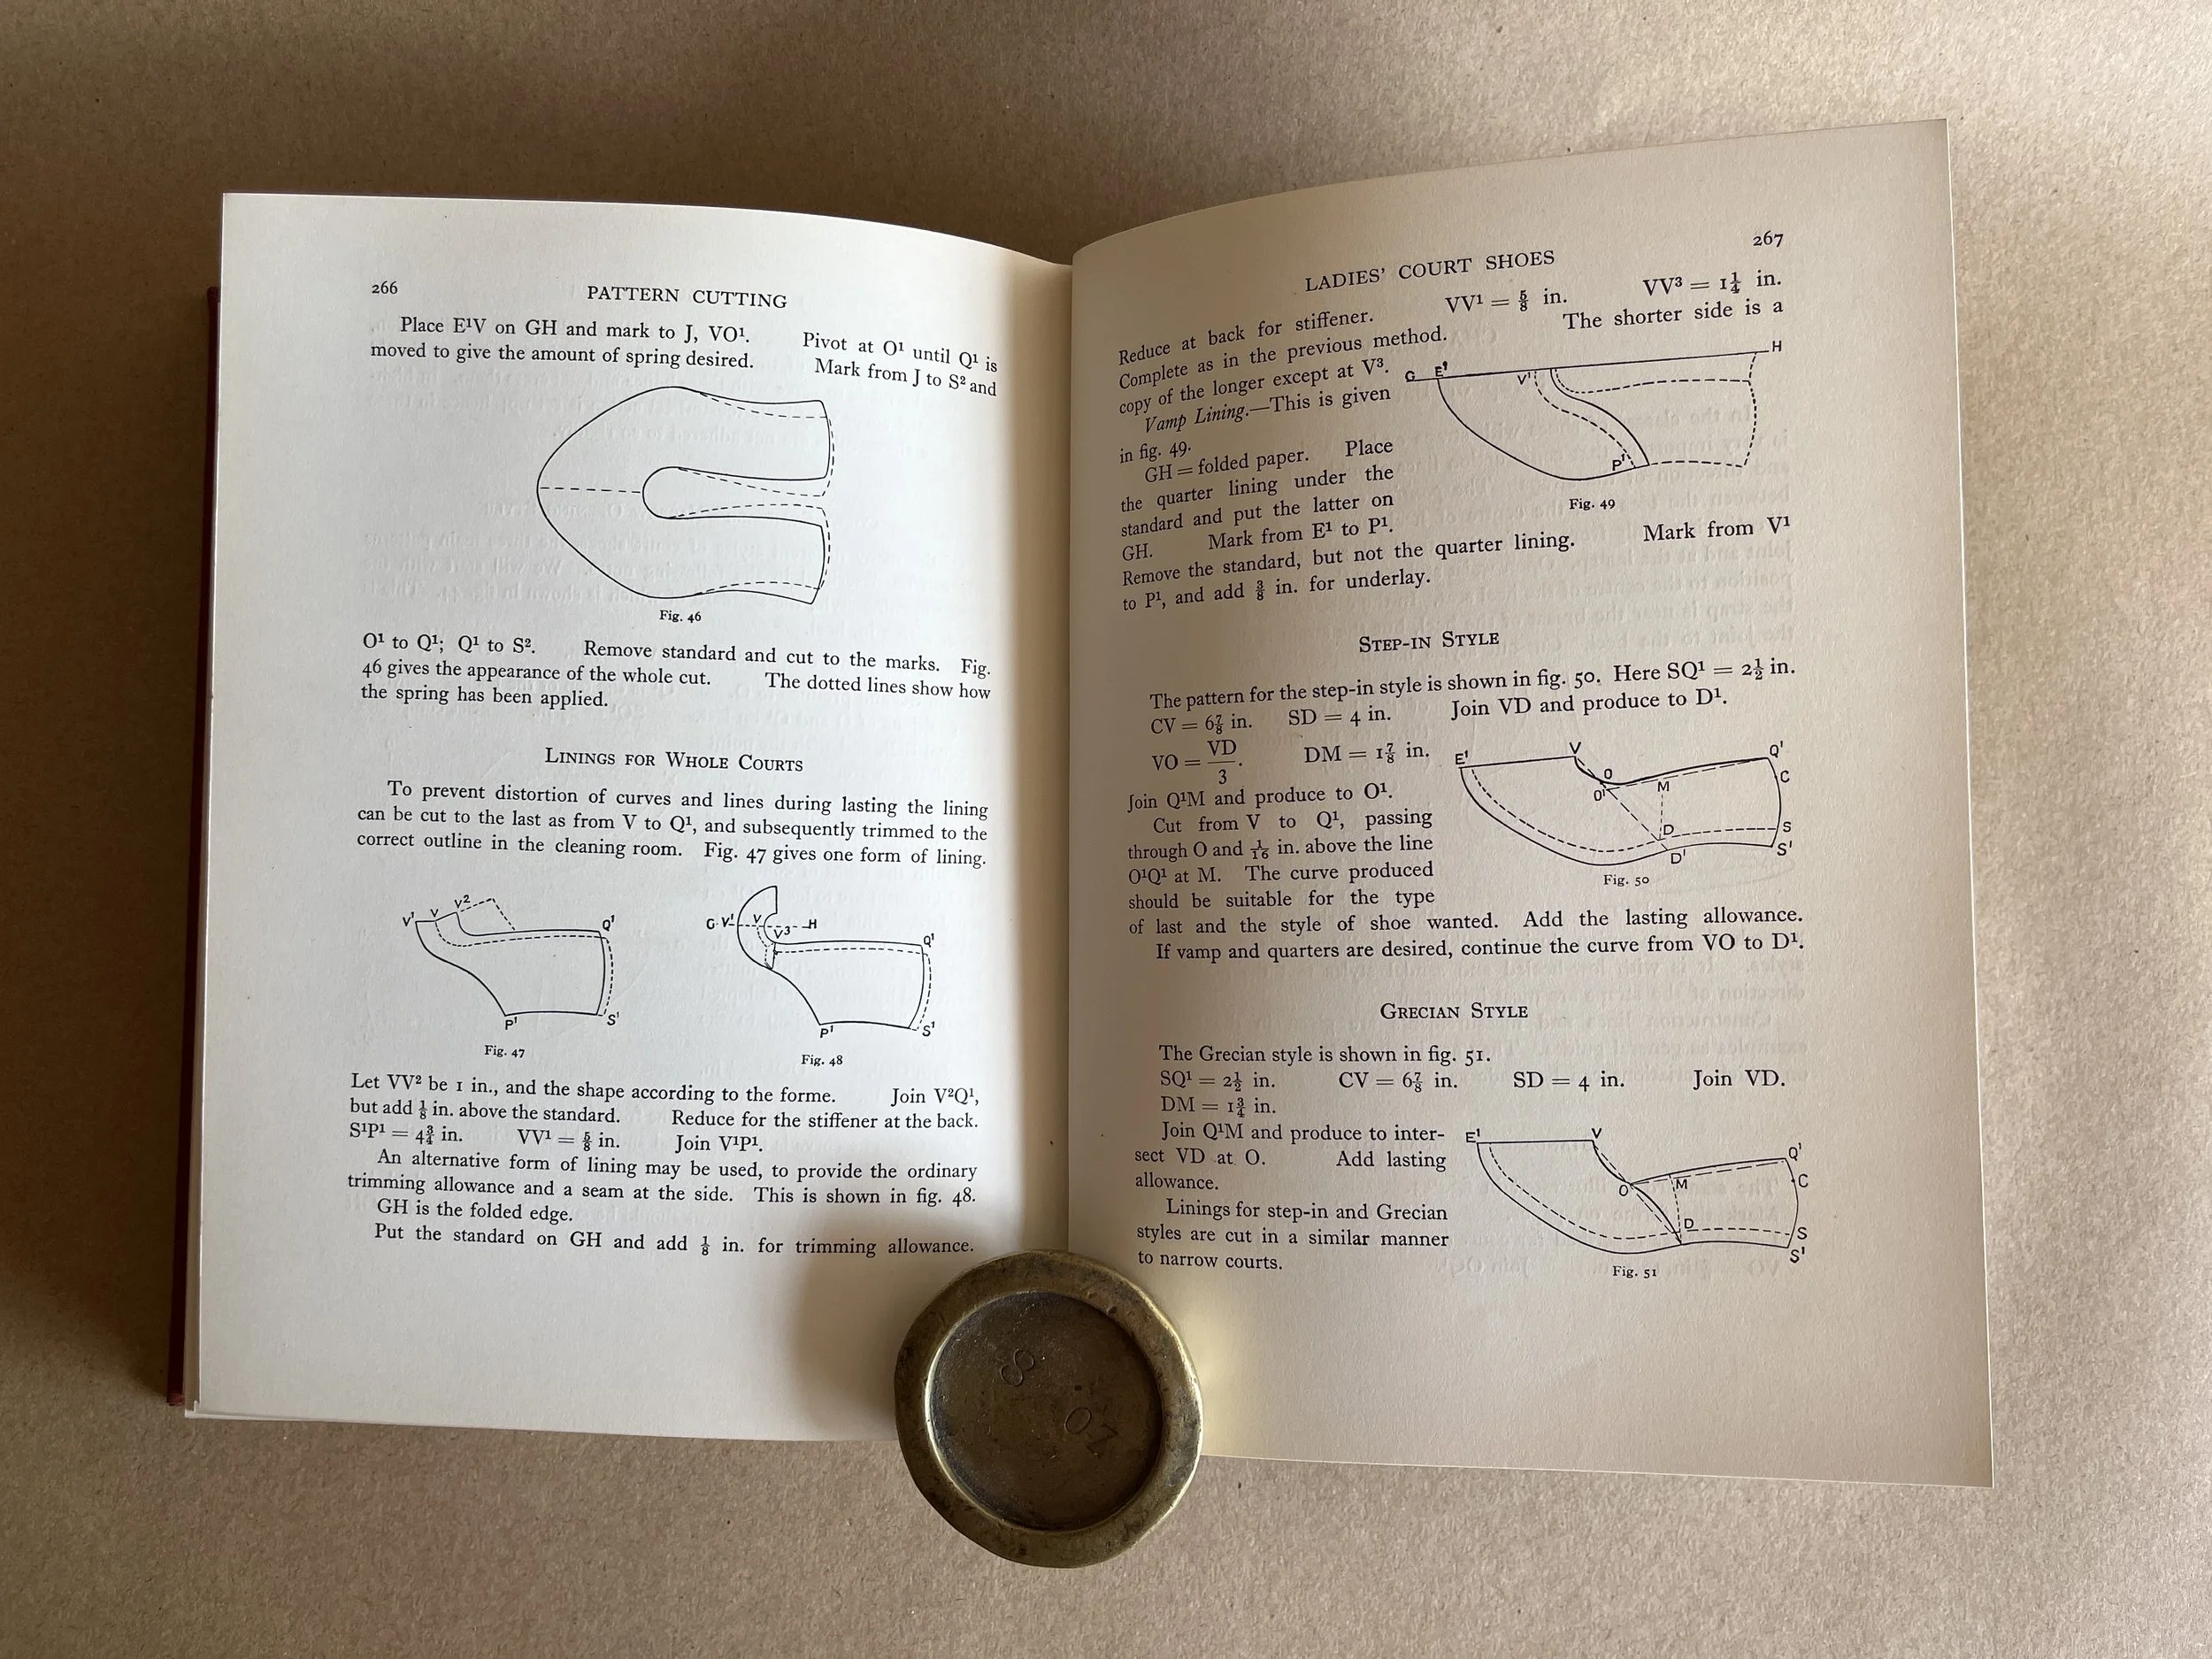 266
PATTERN CUTTING
Place E¹V on GH and mark to J, VO¹. Pivot at O¹ until Q¹ is
moved to give the amount of spring desired. Mark from J to S² and
Fig. 46
O¹ to Q¹; Q¹ to S². Remove standard and cut to the marks. Fig.
46 gives the appearance of the whole cut. The dotted lines show how
the spring has been applied.
LININGS FOR WHOLE COURTS
To prevent distortion of curves and lines during lasting the lining
can be cut to the last as from V to Q¹, and subsequently trimmed to the
correct outline in the cleaning room. Fig. 47 gives one form of lining.
V¹ V V² Q¹
P¹ S¹
Fig. 47
G V¹ V H
V³ Q¹
P¹ S¹
Fig. 48
Let VV² be 1 in., and the shape according to the forme. Join V²Q¹,
but add ⅛ in. above the standard. Reduce for the stiffener at the back.
S¹P¹ = 4¾ in. VV¹ = ⅝ in. Join V¹P¹.
An alternative form of lining may be used, to provide the ordinary
trimming allowance and a seam at the side. This is shown in fig. 48.
GH is the folded edge.
Put the standard on GH and add ⅛ in. for trimming allowance.
LADIES' COURT SHOES
267
Reduce at back for stiffener. VV¹ = ⅝ in. VV³ = 1¼ in.
Complete as in the previous method. The shorter side is a
copy of the longer except at V³.
Vamp Lining.—This is given
in fig. 49.
GH = folded paper. Place
the quarter lining under the
standard and put the latter on
GH. Mark from E¹ to P¹.
G E¹ V¹ H
P¹
Fig. 49
Remove the standard, but not the quarter lining. Mark from V¹
to P¹, and add ⅜ in. for underlay.
STEP-IN STYLE
The pattern for the step-in style is shown in fig. 50. Here SQ¹ = 2½ in.
CV = 6⅞ in. SD = 4 in. Join VD and produce to D¹.
VO = VD/3. DM = 1⅞ in.
Join Q¹M and produce to O¹.
Cut from V to Q¹, passing
through O and 1/16 in. above the line
O¹Q¹ at M. The curve produced
should be suitable for the type
E¹ V Q¹
O C
O¹ M
D S
D¹ S¹
Fig. 50
of last and the style of shoe wanted. Add the lasting allowance.
If vamp and quarters are desired, continue the curve from VO to D¹.
GRECIAN STYLE
The Grecian style is shown in fig. 51.
SQ¹ = 2½ in. CV = 6⅞ in. SD = 4 in. Join VD.
DM = 1¾ in.
Join Q¹M and produce to inter-
sect VD at O. Add lasting
allowance.
Linings for step-in and Grecian
styles are cut in a similar manner
to narrow courts.
E¹ V Q¹
O M C
D S
S¹
Fig. 51
8
OZ